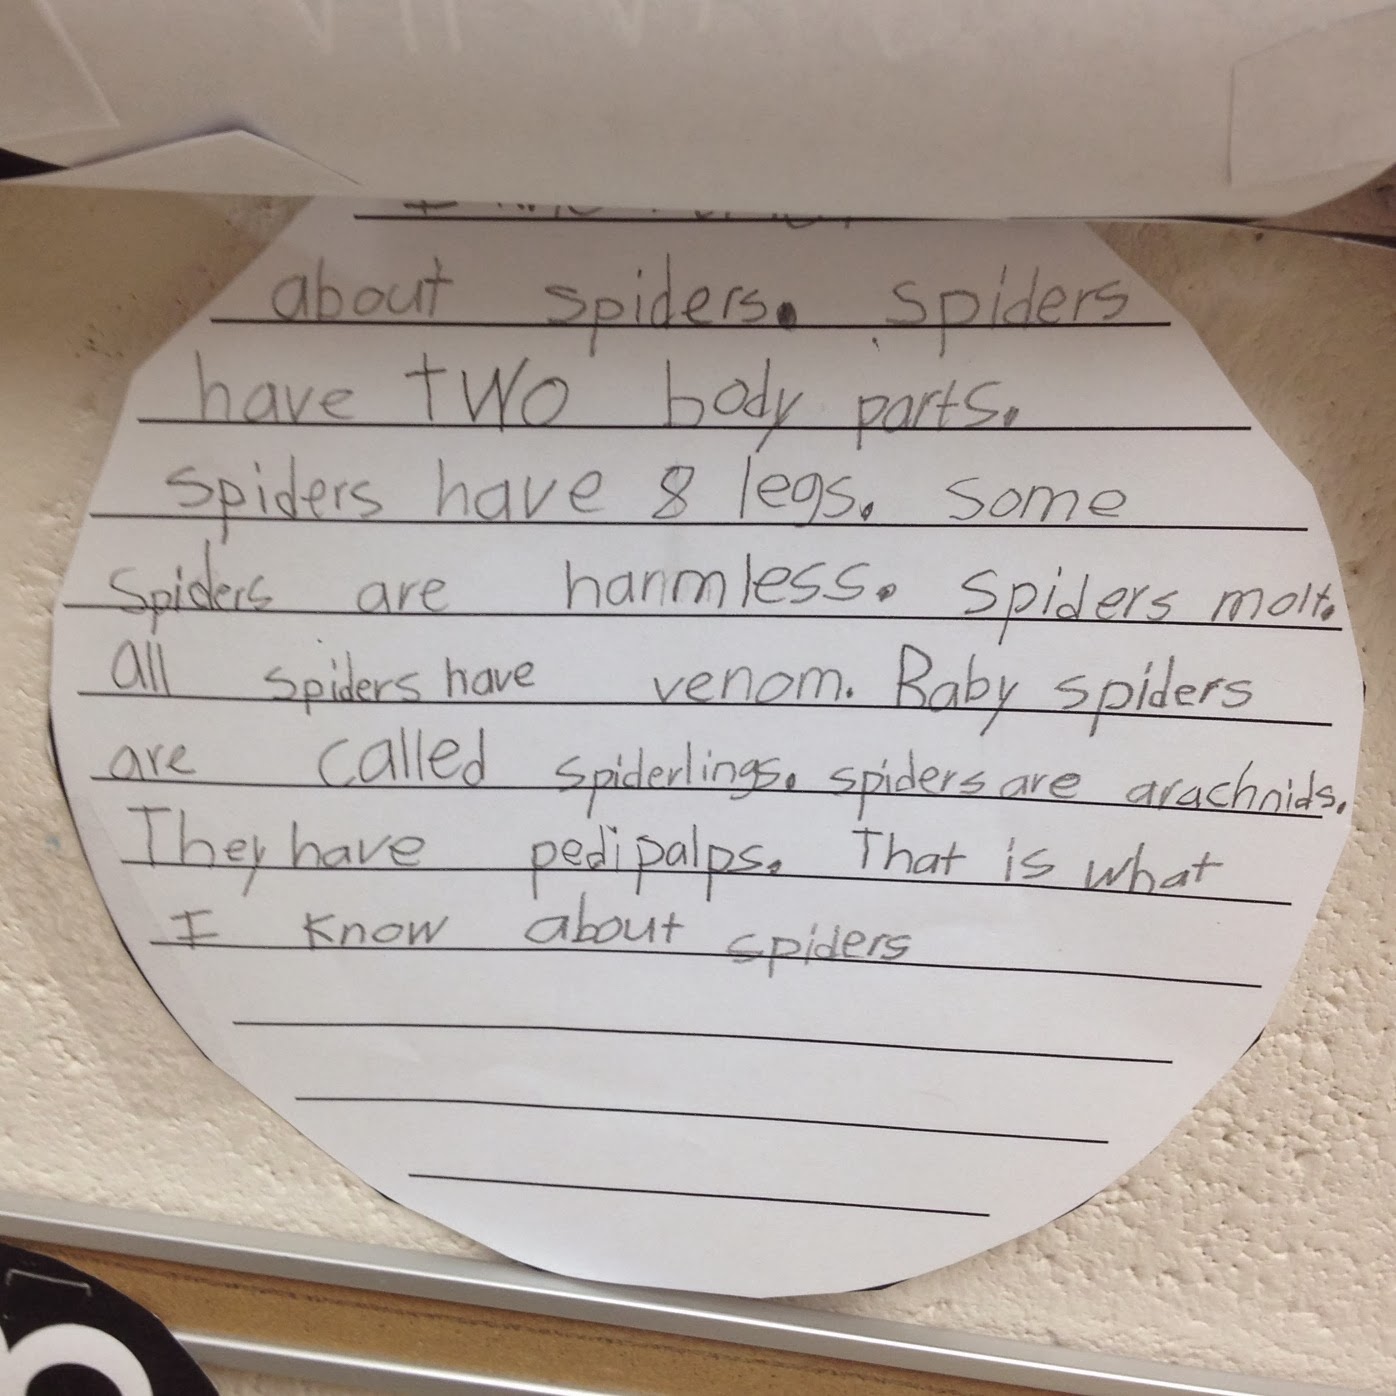 about spiders. Spiders
have two body parts.
spiders have 8 legs. some
spiders are harmless. Spiders molt.
all spiders have venom. Baby spiders
are called spiderlings. spiders are arachnids.
They have pedipalps. That is what
I know about spiders